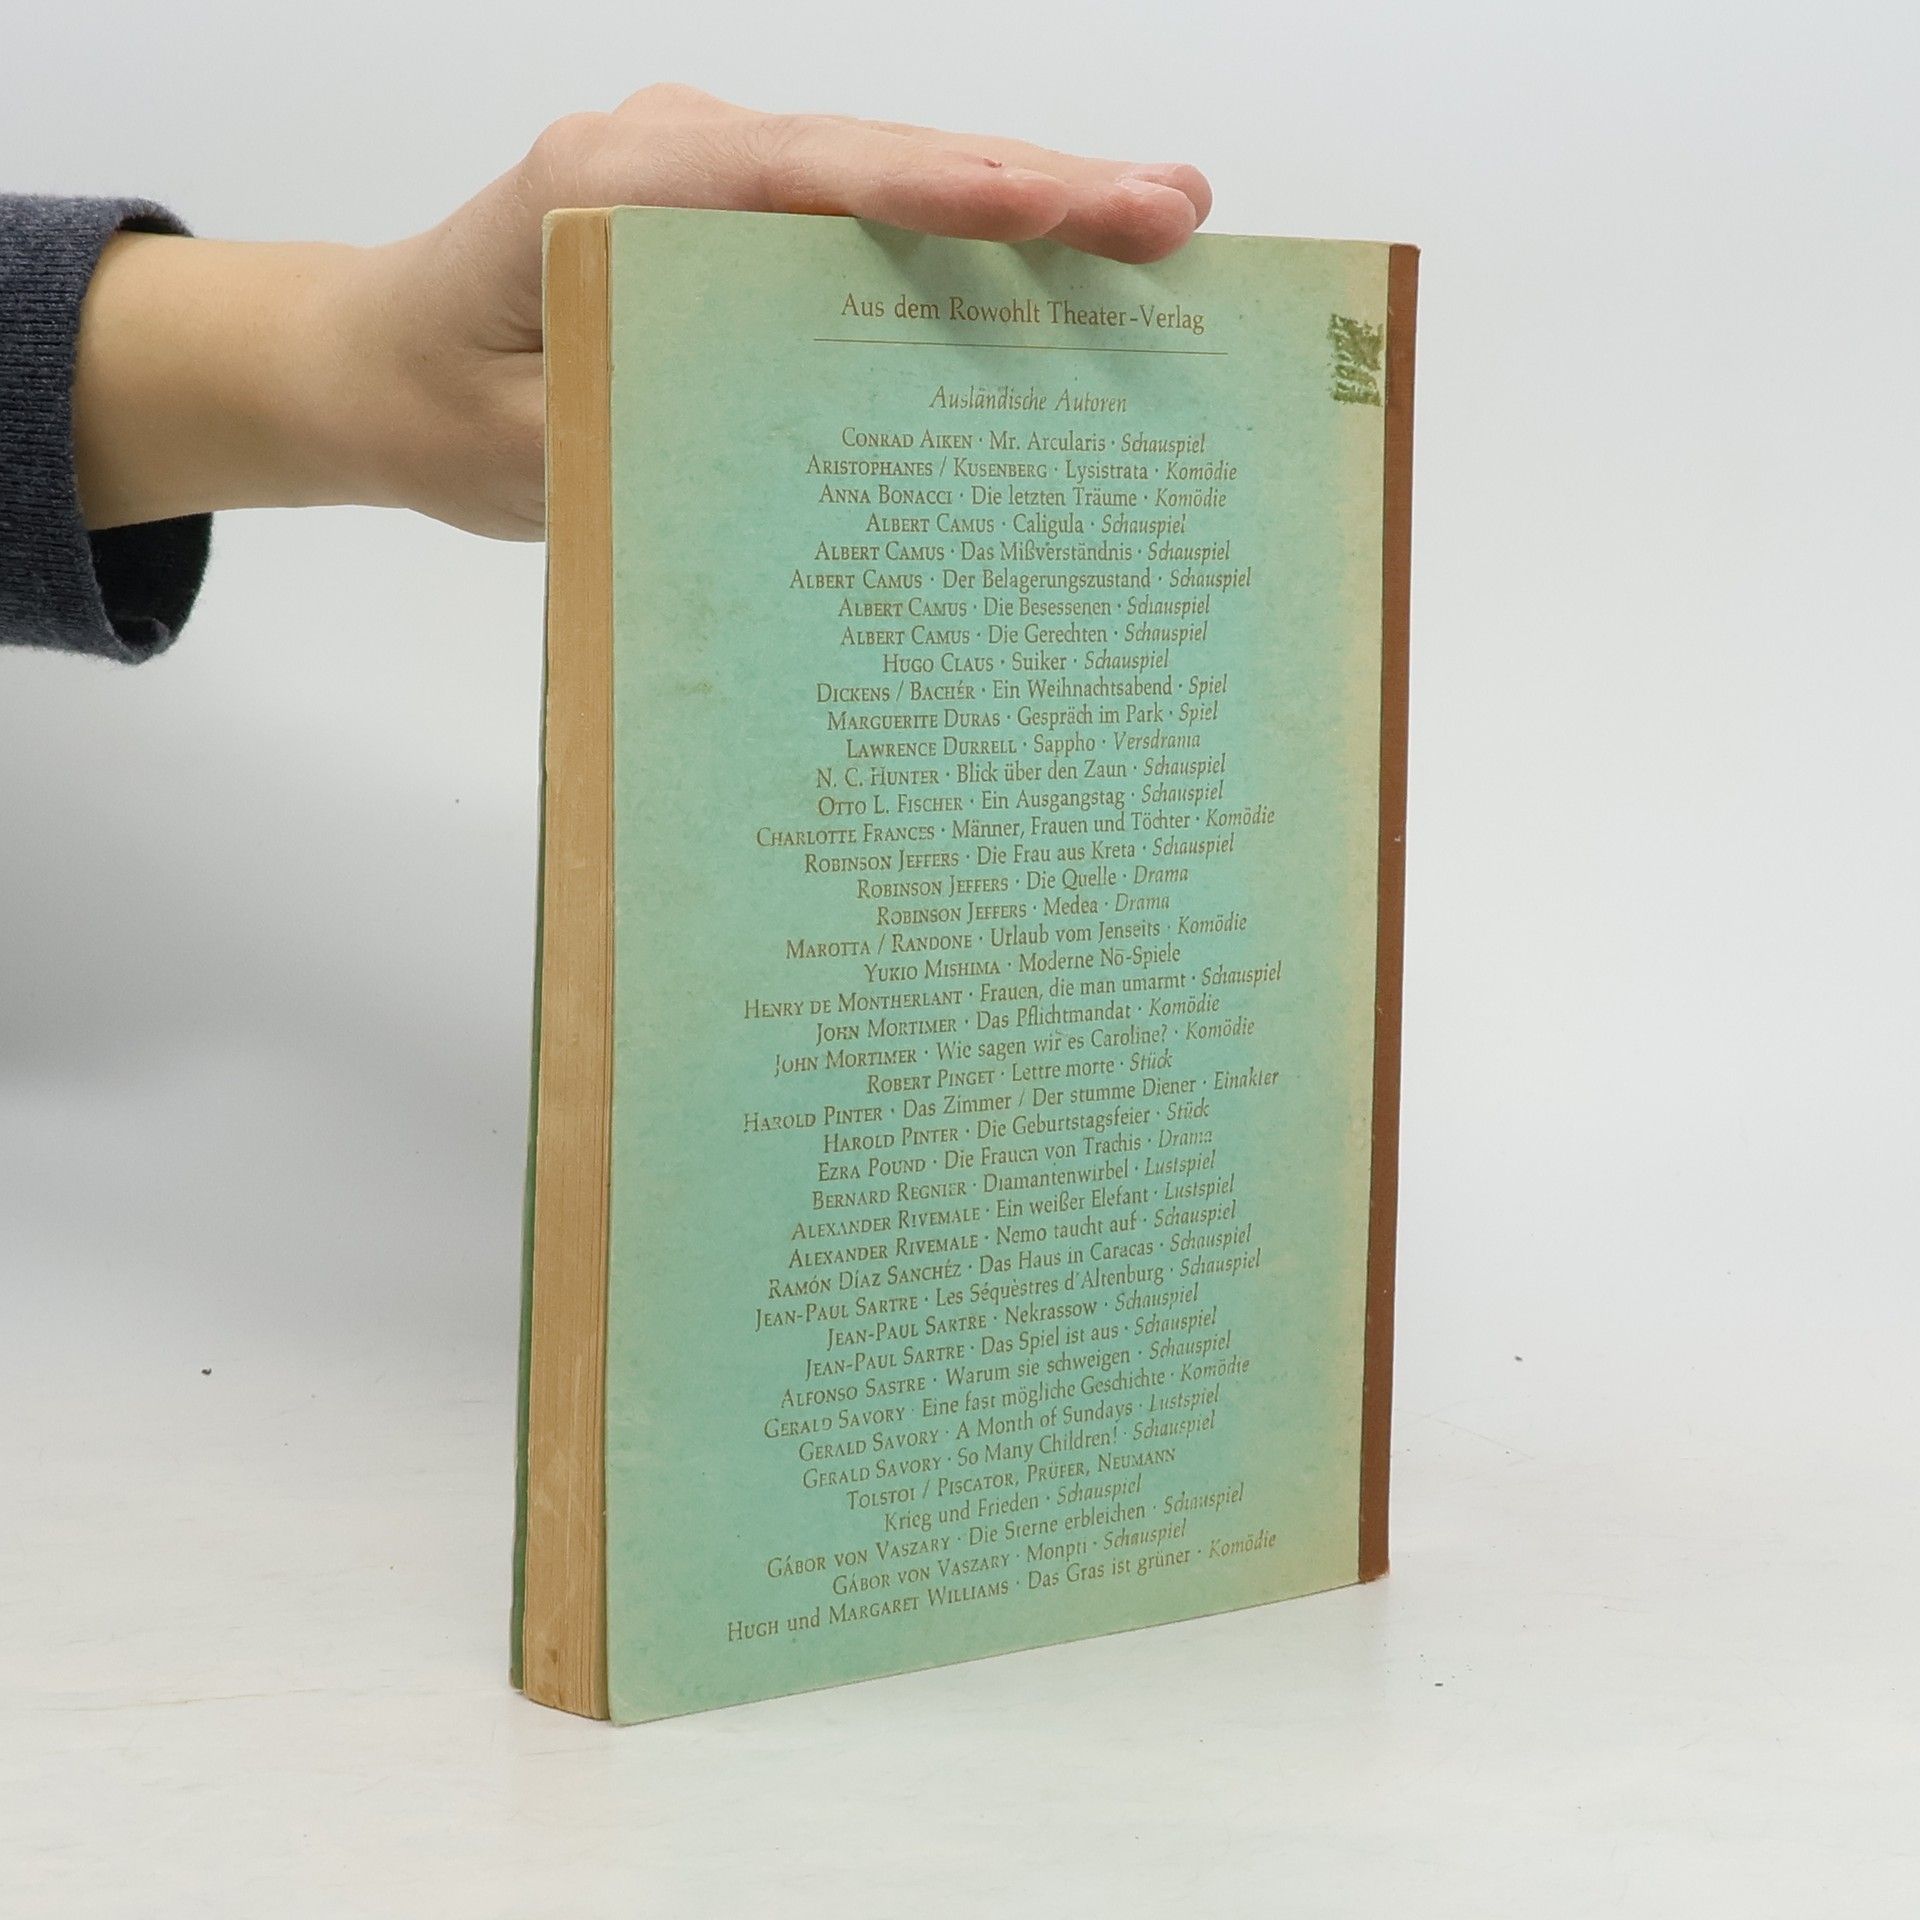 Aus dem Rowohlt Theater-Verlag
Ausländische Autoren
CONRAD AIKEN · Mr. Arcularis · Schauspiel
ARISTOPHANES / KUSENBERG · Lysistrata · Komödie
ANNA BONACCI · Die letzten Träume · Komödie
ALBERT CAMUS · Caligula · Schauspiel
ALBERT CAMUS · Das Mißverständnis · Schauspiel
ALBERT CAMUS · Der Belagerungszustand · Schauspiel
ALBERT CAMUS · Die Besessenen · Schauspiel
ALBERT CAMUS · Die Gerechten · Schauspiel
HUGO CLAUS · Suiker · Schauspiel
DICKENS / BACHÉR · Ein Weihnachtsabend · Spiel
MARGUERITE DURAS · Gespräch im Park · Spiel
LAWRENCE DURRELL · Sappho · Versdrama
N. C. HUNTER · Blick über den Zaun · Schauspiel
OTTO L. FISCHER · Ein Ausgangstag · Schauspiel
CHARLOTTE FRANCES · Männer, Frauen und Töchter · Komödie
ROBINSON JEFFERS · Die Frau aus Kreta · Schauspiel
ROBINSON JEFFERS · Die Quelle · Drama
ROBINSON JEFFERS · Medea · Drama
MAROTTA / RANDONE · Urlaub vom Jenseits · Komödie
YUKIO MISHIMA · Moderne Nō-Spiele
HENRY DE MONTHERLANT · Frauen, die man umarmt · Schauspiel
JOHN MORTIMER · Das Pflichtmandat · Komödie
JOHN MORTIMER · Wie sagen wir es Caroline? · Komödie
ROBERT PINGET · Lettre morte · Stück
HAROLD PINTER · Das Zimmer / Der stumme Diener · Einakter
HAROLD PINTER · Die Geburtstagsfeier · Stück
EZRA POUND · Die Frauen von Trachis · Drama
BERNARD REGNIER · Diamantenwirbel · Lustspiel
ALEXANDER RIVEMALE · Ein weißer Elefant · Lustspiel
ALEXANDER RIVEMALE · Nemo taucht auf · Schauspiel
RAMÓN DÍAZ SANCHÉZ · Das Haus in Caracas · Schauspiel
JEAN-PAUL SARTRE · Les Séquèstres d'Altenburg · Schauspiel
JEAN-PAUL SARTRE · Nekrassow · Schauspiel
JEAN-PAUL SARTRE · Das Spiel ist aus · Schauspiel
ALFONSO SASTRE · Warum sie schweigen · Schauspiel
GERALD SAVORY · Eine fast mögliche Geschichte · Komödie
GERALD SAVORY · A Month of Sundays · Lustspiel
GERALD SAVORY · So Many Children! · Schauspiel
TOLSTOI / PISCATOR, PRÜFER, NEUMANN
Krieg und Frieden · Schauspiel
GÁBOR VON VASZARY · Die Sterne erbleichen · Schauspiel
GÁBOR VON VASZARY · Monpti · Schauspiel
HUGH und MARGARET WILLIAMS · Das Gras ist grüner · Komödie